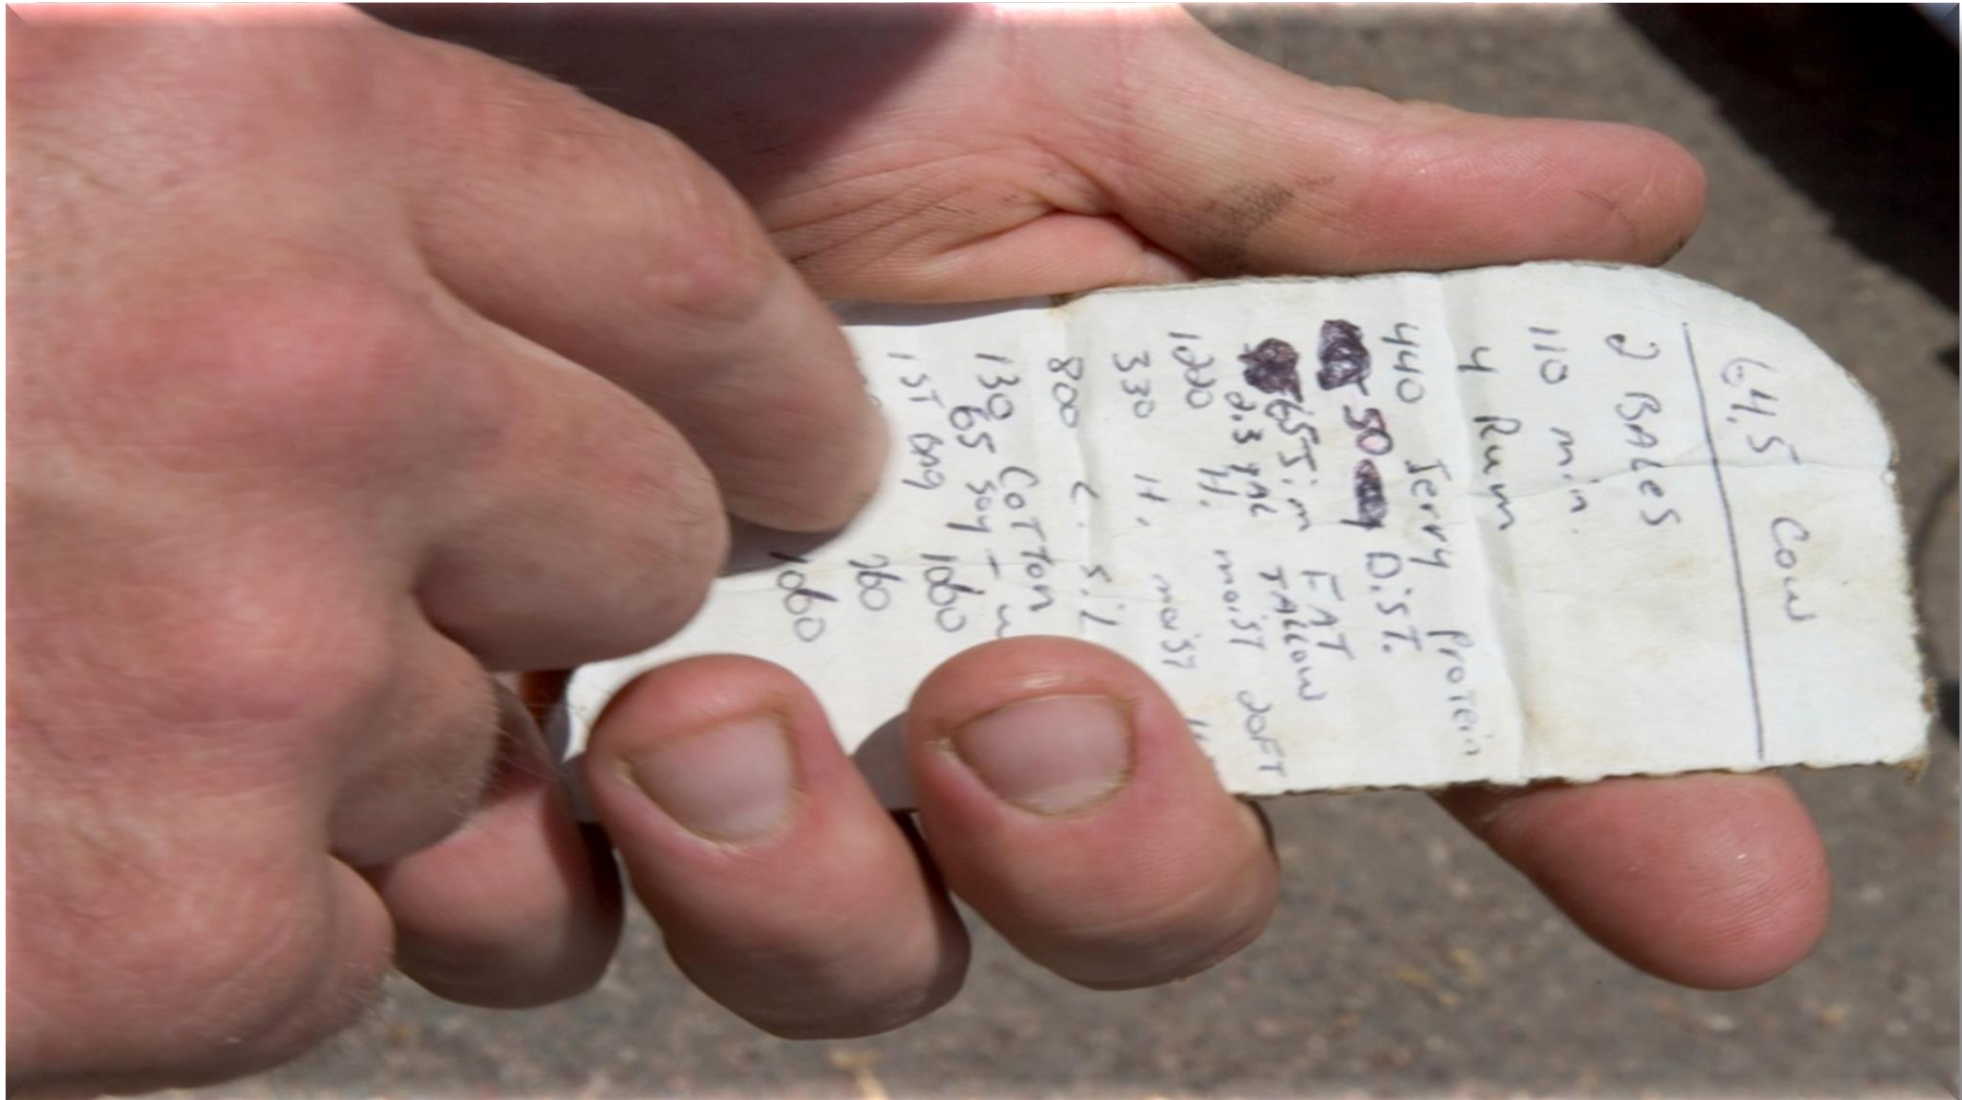 64,5 Cow
2 BALES
110 min.
4 Rum
440 Jerry Protein
50 DisT.
65 Jim FAT
2.3 gAL TALLOW
1220 H. moisT 20FT
330 H. moisT
800 C. SiL
130 COTTon
65 Soy -
1ST BAg 1060
260
1060